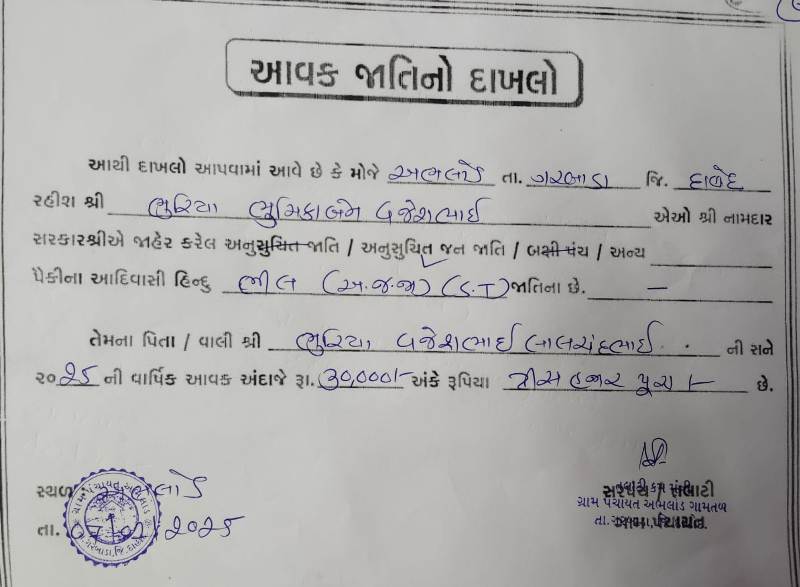 આવક જાતિનો દાખલો
આથી દાખલો આપવામાં આવે છે કે મોજે અભલોડ તા. ગરબાડા જિ. દાહોદ
રહીશ શ્રી ભુરિયા ભુમિકાબેન વજેશભાઈ એઓ શ્રી નામદાર
સરકારશ્રીએ જાહેર કરેલ અનુસુચિત જાતિ / અનુસુચિત જન જાતિ / બક્ષી પંચ / અન્ય
પૈકીના આદિવાસી હિન્દુ ભીલ (અ.જ.જા) (S.T) જાતિના છે. —
તેમના પિતા / વાલી શ્રી ભુરિયા વજેશભાઈ લાલચંદભાઈ ની સને
૨૦25 ની વાર્ષિક આવક અંદાજે રૂા. 30,000/- અંકે રૂપિયા ત્રીસ હજાર પુરા /- છે.
સ્થળ અભલોડ
તા. 07.02.2025
સરપંચ / તલાટી
તલાટી કમ મંત્રી
ગ્રામ પંચાયત અભલોડ ગામતળ
તા.ગરબાડા
ગ્રામ પંચાયત અભલોડ
તા.ગરબાડા,જિ.દાહોદ